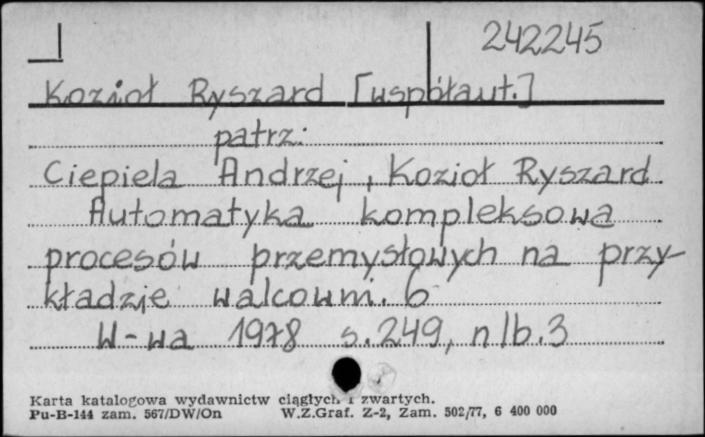 242245
Kozioł Ryszard [współaut.]
patrz:
Ciepiela Andrzej, Kozioł Ryszard
Automatyka kompleksowa
procesów przemysłowych na przy-
kładzie walcowni. 6
W-wa 1978 s. 249, nlb. 3
Karta katalogowa wydawnictw ciągłych i zwartych.
Pu-B-144 zam. 567/DW/On W.Z.Graf. Z-2, Zam. 502/77, 6 400 000